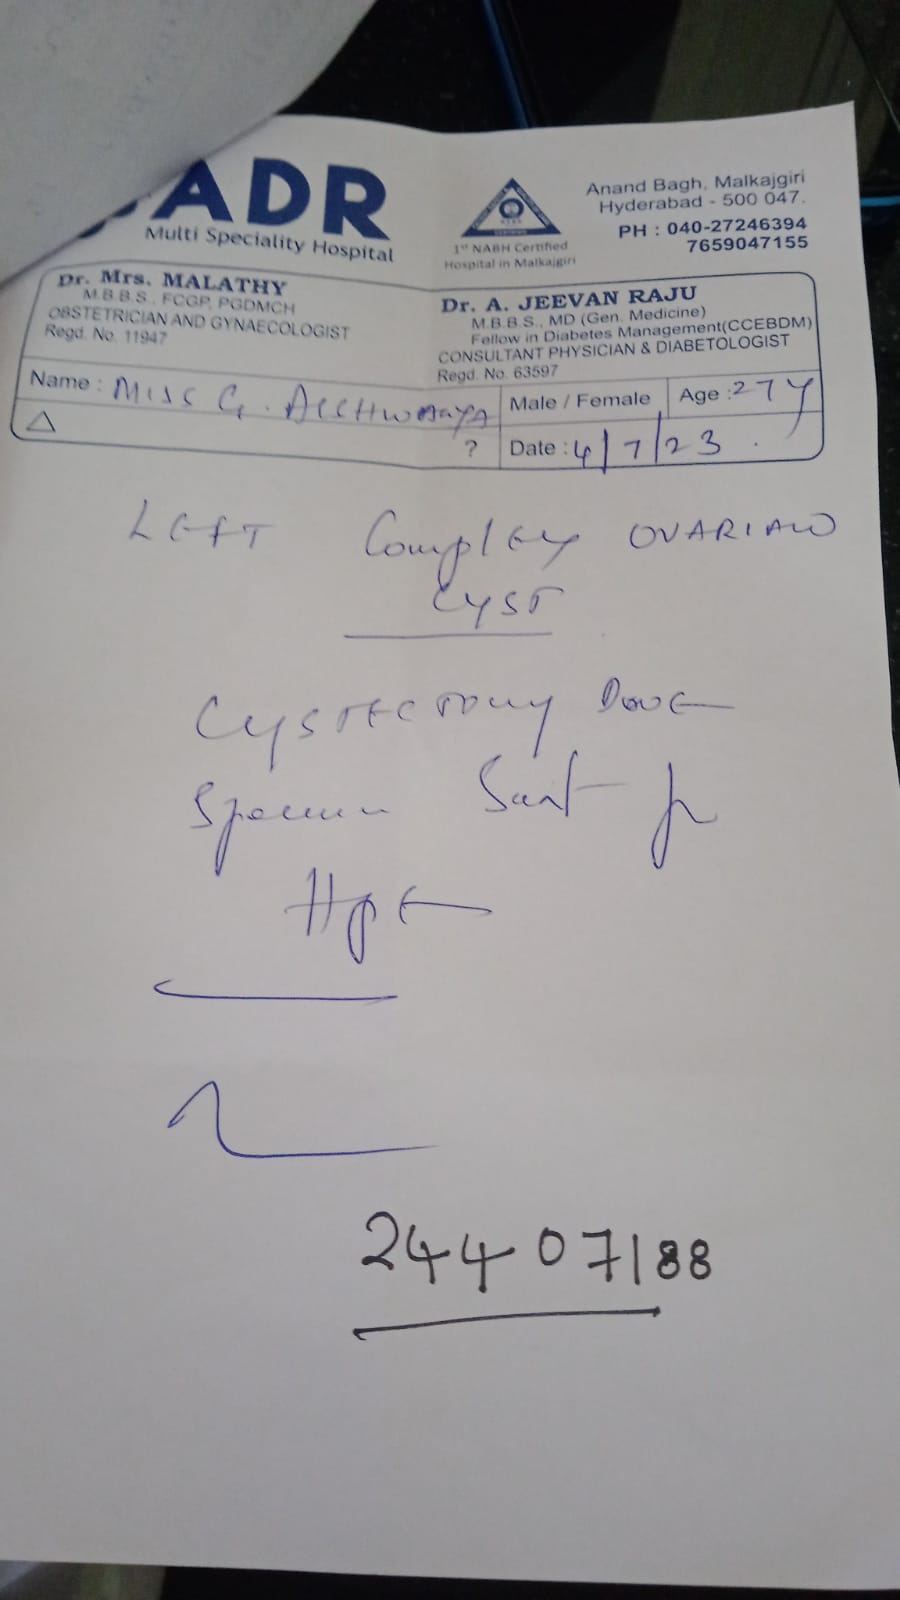 ADR
Multi Speciality Hospital
1st NABH Certified
Hospital in Malkajgiri
Anand Bagh, Malkajgiri
Hyderabad - 500 047.
PH : 040-27246394
7659047155
Dr. Mrs. MALATHY
M.B.B.S., FCGP, PGDMCH
OBSTETRICIAN AND GYNAECOLOGIST
Regd. No. 11947
Dr. A. JEEVAN RAJU
M.B.B.S., MD (Gen. Medicine)
Fellow in Diabetes Management(CCEBDM)
CONSULTANT PHYSICIAN & DIABETOLOGIST
Regd. No. 63597
Name : Miss G.
Male / Female
Age : 27 y
△
?
Date : 4/7/23
LEFT Complex OVARIAN
CYST
CYSTECTOMY DONE
Specimen Sent for
HPE
24407188